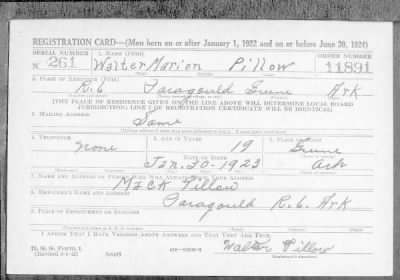 REGISTRATION CARD—(Men born on or after January 1, 1922 and on or before June 30, 1924)
SERIAL NUMBER 1. NAME (Print) ORDER NUMBER
N 261 Walter Marion Pillow 11891
2. PLACE OF RESIDENCE (Print)
R.6 Paragould Greene Ark
[THE PLACE OF RESIDENCE GIVEN ON THE LINE ABOVE WILL DETERMINE LOCAL BOARD
JURISDICTION; LINE 2 OF REGISTRATION CERTIFICATE WILL BE IDENTICAL]
3. MAILING ADDRESS
Same
4. TELEPHONE 5. AGE IN YEARS 6. PLACE OF BIRTH
None 19 Greene
DATE OF BIRTH
Jan. 30-1923 Ark
7. NAME AND ADDRESS OF PERSON WHO WILL ALWAYS KNOW YOUR ADDRESS
Mack Pillow
8. EMPLOYER'S NAME AND ADDRESS
Paragould R.6. Ark
9. PLACE OF EMPLOYMENT OR BUSINESS
I AFFIRM THAT I HAVE VERIFIED ABOVE ANSWERS AND THAT THEY ARE TRUE.
D. S. S. Form 1 Walter Pillow